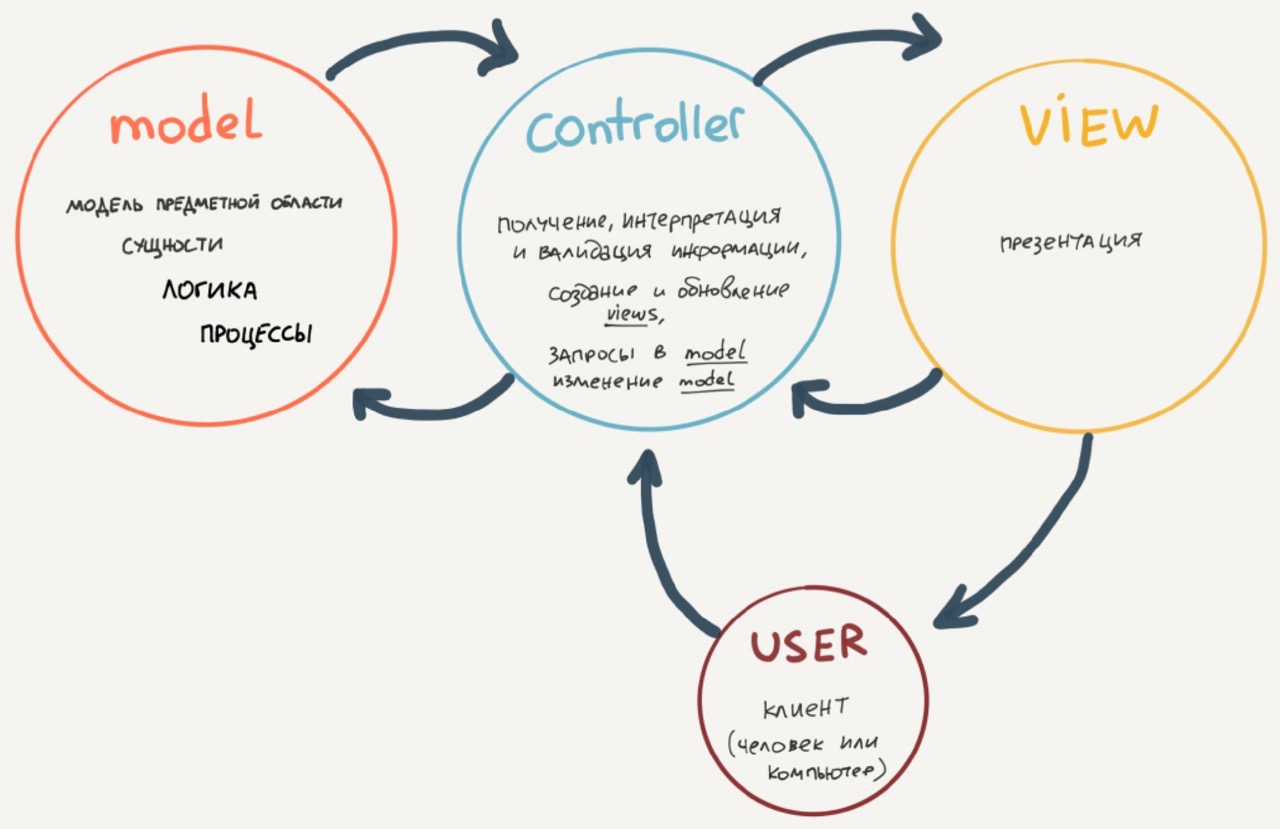 model
МОДЕЛЬ ПРЕДМЕТНОЙ ОБЛАСТИ
СУЩНОСТИ
ЛОГИКА
ПРОЦЕССЫ
controller
получение, интерпретация
и валидация информации,
создание и обновление
views,
запросы в model
изменение model
VIEW
презентация
USER
клиент
(человек или
компьютер)